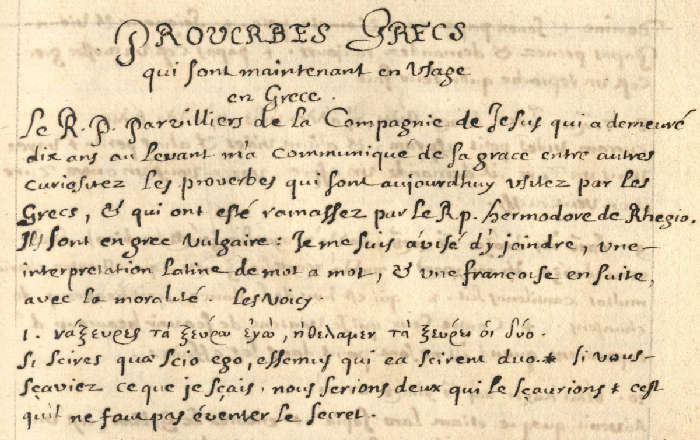 PROVERBES GRECS
qui sont maintenant en Usage
en Grece.
Le R. P. Parvilliers de la Compagnie de Jesus qui a demeuré
dix ans au Levant m'a communiqué de sa grace entre autres
curiositez les proverbes qui sont aujourdhuy usitez par les
Grecs, & qui ont esté ramassez par le R. p. hermodore de Rhegio.
Ils sont en grec vulgaire: Je me suis avisé d'y joindre, une
interpretation Latine de mot a mot, & une francoise en suite,
avec la moralité. Les voicy.
1. νάξευρες τὰ ξεύρω ἐγὼ, ἠθελαμεν τὰ ξευρει οἱ δύο.
Si scires quæ scio ego, essemus qui ea scirent duo.* si vous
sçaviez ce que je sçais, nous serions deux qui le sçaurions * c'est
qu'il ne faut pas éventer le secret.